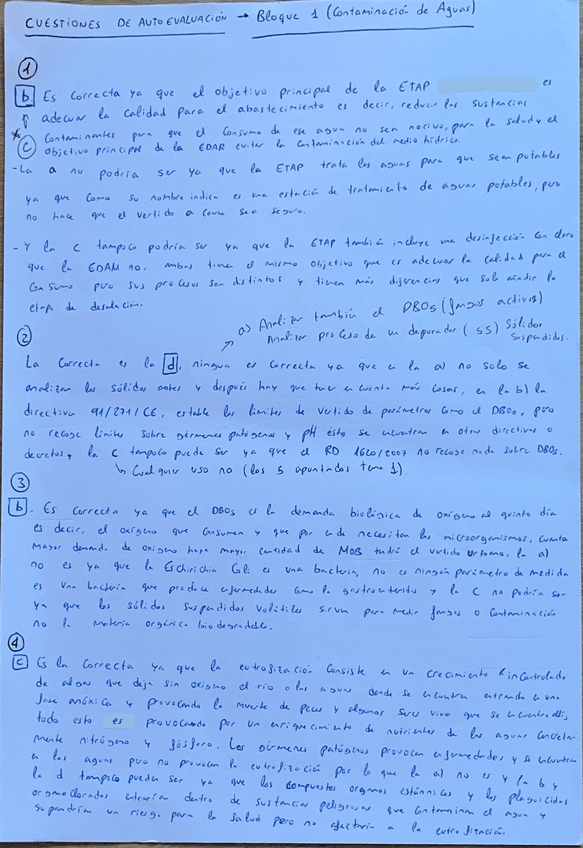 CUESTIONES DE AUTOEVALUACIÓN → Bloque 1 (Contaminación de Aguas)
①
b Es Correcta ya que el objetivo principal de la ETAP es
adecuar la Calidad para el abastecimiento es decir, reducir las sustancias
* Contaminantes para que el Consumo de ese agua no sea nocivo, para la salud y el
c objetivo principal de la EDAR evitar la Contaminación del medio hídrico.
- La a no podría ser ya que la ETAP trata las aguas para que sean potables
ya que como su nombre indica es una estación de tratamiento de aguas potables, pero
no hace que el vertido a cauce sea seguro.
- Y la c tampoco podría ser ya que la ETAP también incluye una desinfección con cloro
que la EDAM no, ambas tienen el mismo objetivo que es adecuar la calidad para el
Consumo pero sus procesos son distintos y tienen más diferencias que solo añadir la
etapa de desalación.
a) Analizar también el DBO5 (fangos activos)
Analizar proceso de un depurador (SS) Sólidos
Suspendidos.
②
La Correcta es la d, ninguna es Correcta ya que en la a) no solo se
analizan los sólidos antes y después hay que tener en cuenta más cosas, en la b) la
directiva 91/271/CE, estable los límites de vertido de parámetros como el DBO5, pero
no recoge límites sobre gérmenes patógenos y pH ésto se encuentran en otras directivas o
decretos y la c tampoco puede ser ya que el RD 1620/2007 no recoge nada sobre DBO5.
↳ Cualquier uso no (los 5 apuntados tema 1).
③
b. Es Correcta ya que el DBO5 es la demanda biológica de oxígeno al quinto día
es decir, el oxígeno que consumen y que por ende necesitan los microorganismos, cuanta
Mayor demanda de oxígeno haya mayor cantidad de MOB tendrá el vertido urbano, la a)
no es ya que la Eschirichia Coli es una bacteria, no es ningún parámetro de medida
es una bacteria que produce enfermedades como la gastroenteritis y la C no podría ser
ya que los sólidos suspendidos volátiles sirven para medir fangos o contaminación
no la materia orgánica biodegradable.
④
c Es la Correcta ya que la eutrofización consiste en un crecimiento incontrolado
de algas que deja sin oxígeno el río o las aguas donde se encuentra entrando en una
fase anóxica y provocando la muerte de peces y algunos seres vivo que se encuentra allí,
todo esto es provocando por un enriquecimiento de nutrientes de las aguas concreta-
mente nitrógeno y fósforo. Los gérmenes patógenos provocan enfermedades y se encuentran
en las aguas pero no provocan la eutrofización por lo que la a) no es y la b y
la d tampoco pueden ser ya que los compuestos organos estánnicos y los plaguicidas
organoclorados entrarían dentro de sustancias peligrosas que contaminan el agua y
supondrían un riesgo para la salud pero no afectaría a la eutrofización.